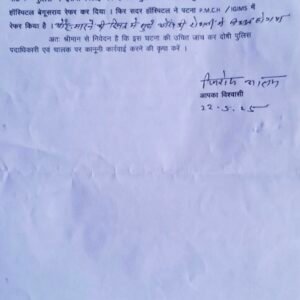 हॉस्पिटल बेगूसराय रेफर कर दिया । फिर सदर हॉस्पिटल ने पटना P.M.C.H / IGIMS में
रेफर किया है ।
अतः श्रीमान से निवेदन है कि इस घटना की उचित जांच कर दोषी पुलिस
पदाधिकारी एवं चालक पर कानूनी कार्रवाई करने की कृपा करें ।
आलम
आपका विश्वासी
22.5.25